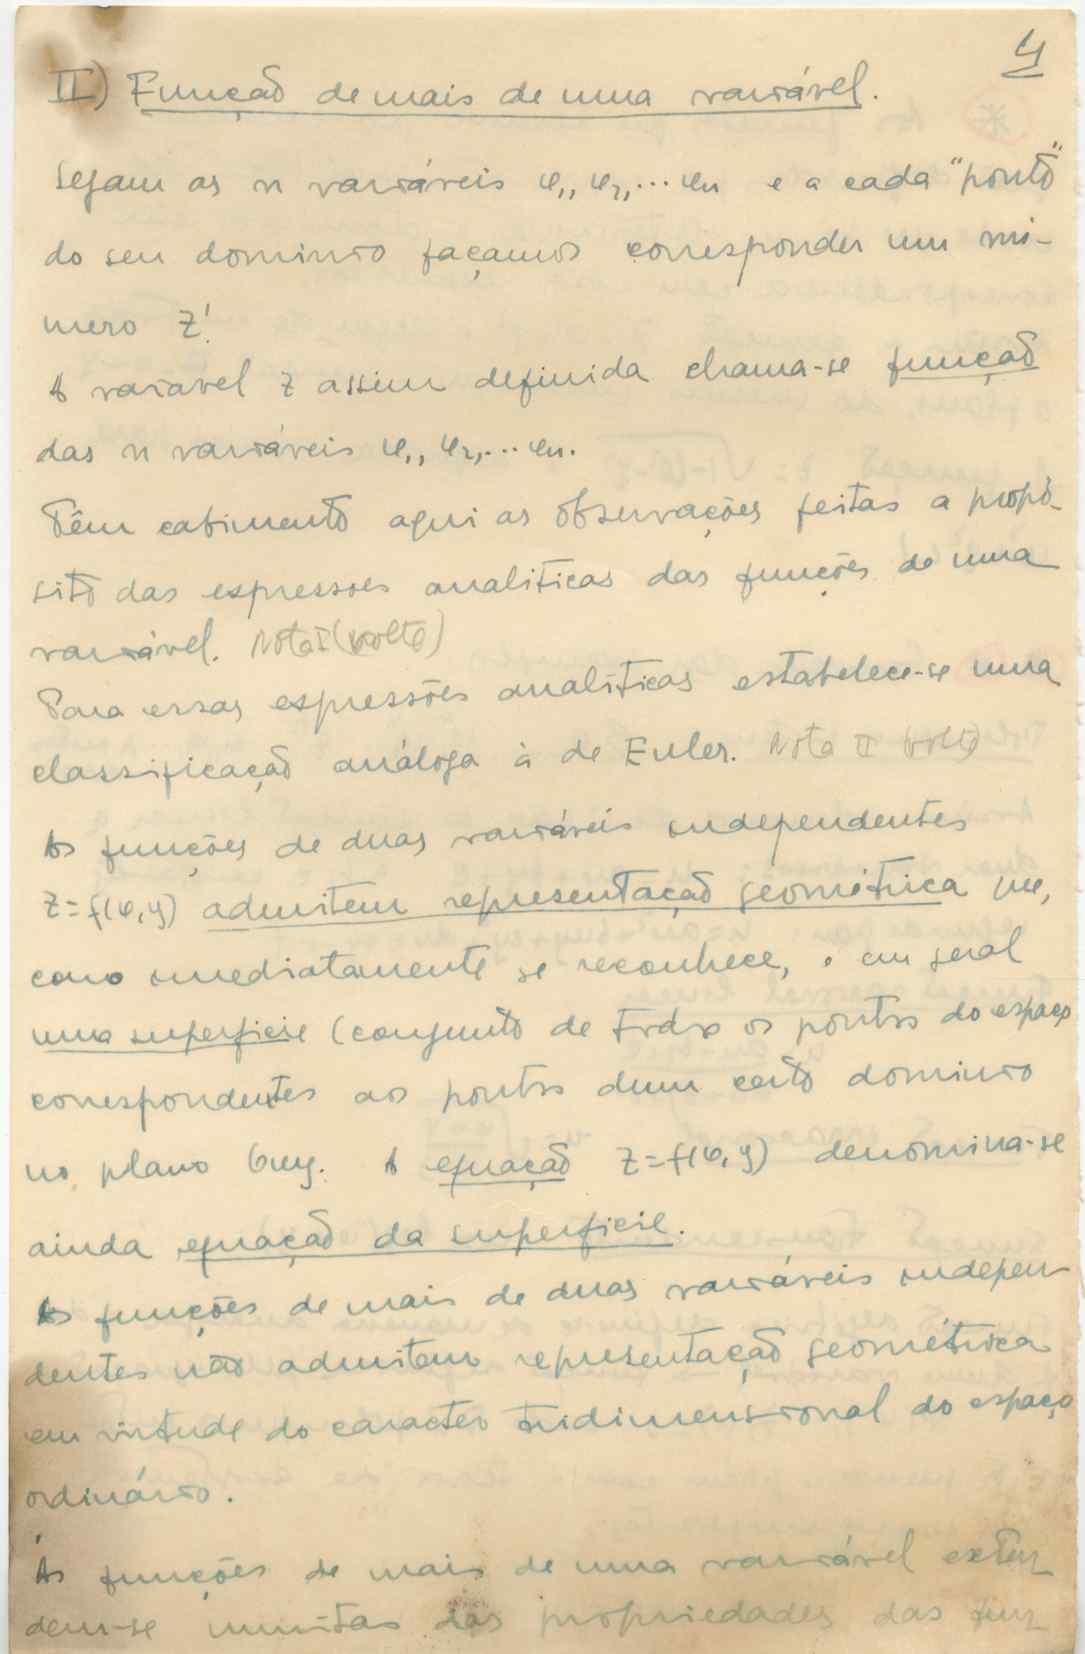 4
II) Função de mais de uma variável.
Sejam as n variáveis x₁, x₂, ... xn e a cada "ponto"
do seu dominio façamos corresponder um nú-
mero z'.
A variavel z assim definida chama-se função
das n variáveis x₁, x₂, ... xn.
Têm cabimento aqui as observações feitas a propó-
sito das expressoes analiticas das funções de uma
variável. Nota I (volta)
Para essas expressões analíticas estabelece-se uma
classificação análoga à de Euler. Nota II volta
As funções de duas variáveis independentes
z = f(x, y) admitem representação geométrica que,
como imediatamente se reconhece, é em geral
uma superficie (conjunto de todos os pontos do espaço
correspondentes aos pontos dum certo dominio
no plano Oxy. A equação z = f(x, y) denomina-se
ainda equação da superficie.
As funções de mais de duas variáveis indepen
dentes não admitem representação geométrica
em virtude do caracter tridimensional do espaço
ordinário.
Às funções de mais de uma variável exten
dem-se muitas das propriedades das fun